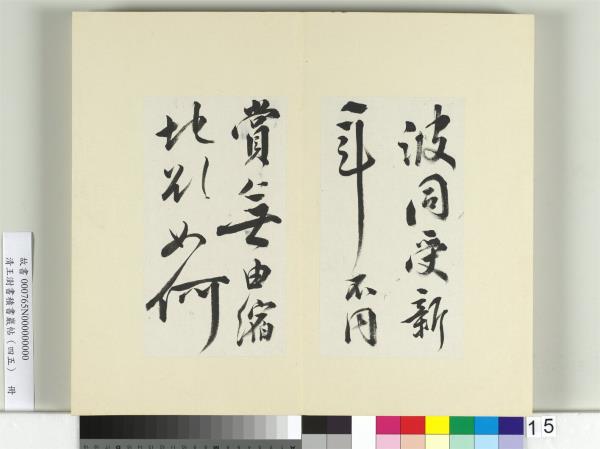 波同受新
年不同
賞無由縮
地欲如何
故書000765N000000000
清王澍書積書巖帖（四五） 冊
15